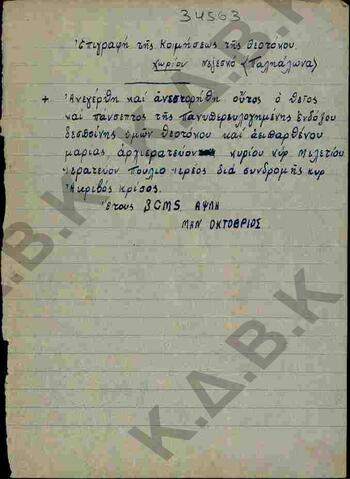 34563
Ἐπιγραφή τῆς Κοιμήσεως τῆς Θεοτόκου
χωρίον Νεζεσκό (Παληάλωνα)
+ Ἀνεγέρθη καί ἀνεστορήθη οὗτος ὁ θεῖος
καί πανσεπτος τῆς πανυπερευλογημένης ἐνδόξου
δεσποίνης ὑμῶν θεοτόκου καί ἀειπαρθένου
μαριας, ἀρχιερατεύον κυρίου κύρ Μελετίου
ἱερατεύον πουλιο ιερέος διά συνδρομῆς κυρ
κρίσος.
Ἔτους ΑΨΛΗ
ΜΗΝ ΟΚΤΟΒΡΙΟΣ
Κ.Δ.Β.Κ